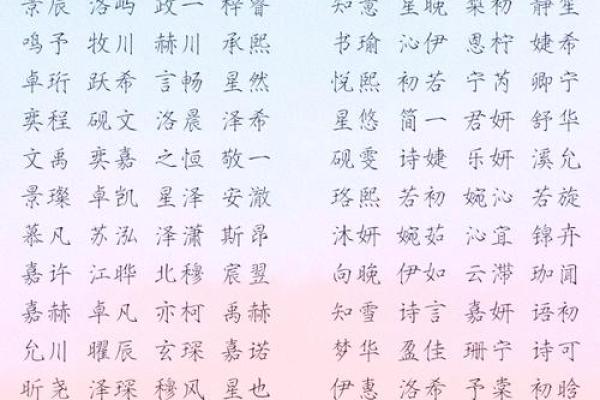 景辰 洛屿 政一 梓睿 知意 星晚 桑初 静笙
鸣予 牧川 赫川 承熙 书瑜 沁伊 恩柠 婕希
卓珩 跃希 言畅 星然 悦熙 初若 宁芮 卿宁
奕程 砚文 洛晨 泽希 星悠 简一 君妍 舒华
文禹 奕嘉 之恒 敬一 砚雯 诗婕 乐妍 溪允
景璨 卓凯 星泽 安澈 珞熙 若初 婉沁 若旋
慕凡 苏泓 泽潇 斯昂 沐妍 婉茹 沁宜 锦卉
嘉许 江晔 北穆 宸翌 向晚 伊如 云滞 珈闻
嘉赫 卓凡 亦柯 禹赫 知雪 诗言 嘉妍 语初
允川 曜辰 玄琛 嘉诺 梦华 盈佳 珊宁 诗可
昕尧 泽琛 穆风 星也 伊惠 洛希 予棠 初晗